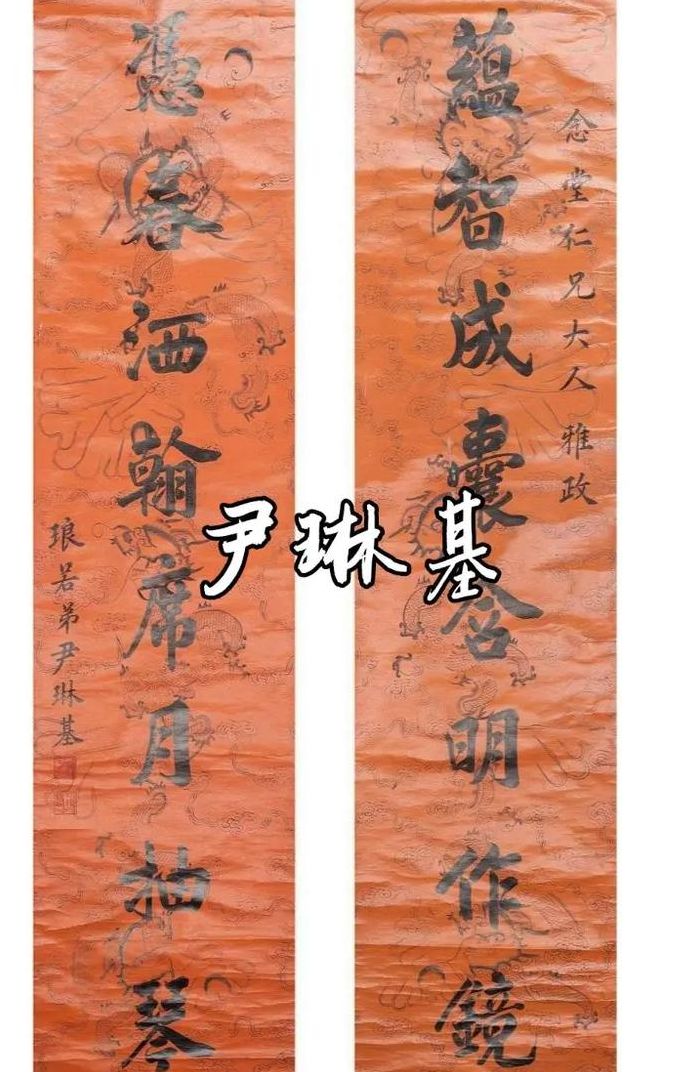 念堂仁兄大人雅政
蘊智成囊含明作鏡
憑春洒翰席月抽琴
琅若弟尹琳基
尹琳基